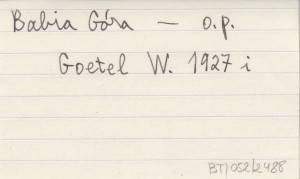 Babia Góra — o.p.
Goetel W. 1927 i
BT/052/2488